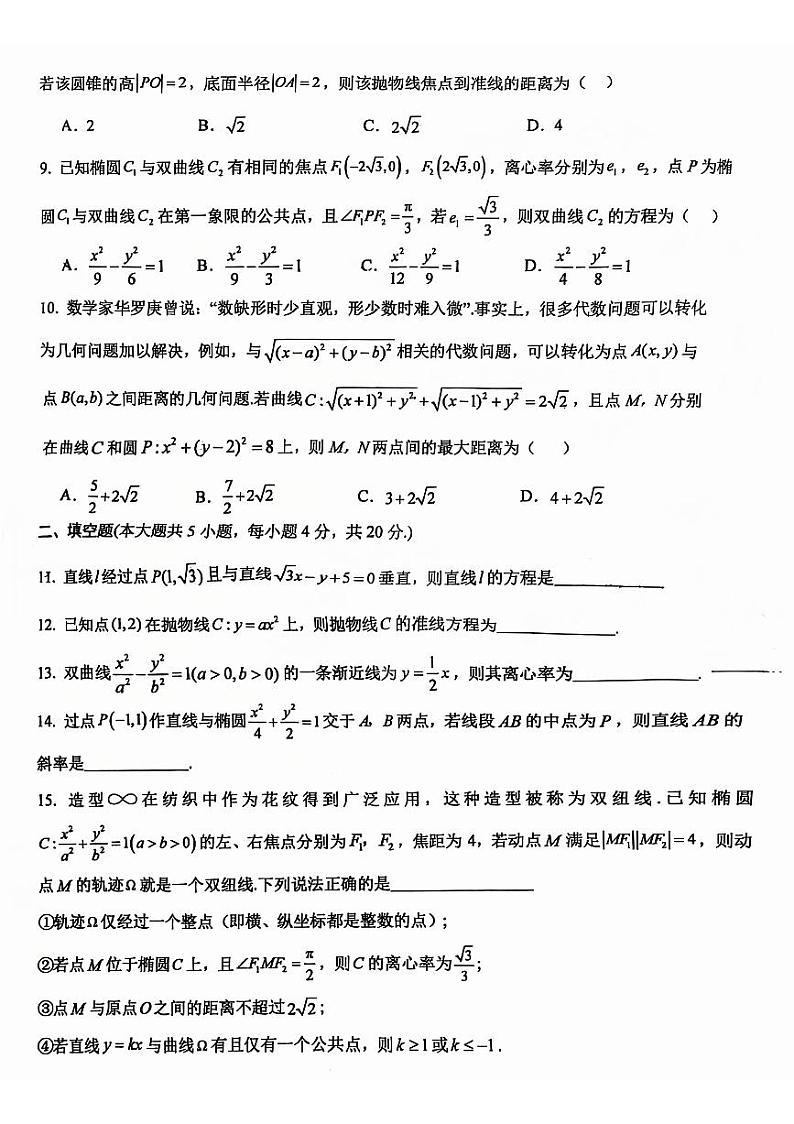 若该圆锥的高|PO|=2，底面半径|OA|=2，则该抛物线焦点到准线的距离为（ ）
A．2 B．√2 C．2√2 D．4
9. 已知椭圆C₁与双曲线C₂有相同的焦点F₁(-2√3,0)，F₂(2√3,0)，离心率分别为e₁，e₂，点P为椭
圆C₁与双曲线C₂在第一象限的公共点，且∠F₁PF₂=π/3，若e₁=√3/3，则双曲线C₂的方程为（ ）
A．x²/9-y²/6=1 B．x²/9-y²/3=1 C．x²/12-y²/9=1 D．x²/4-y²/8=1
10. 数学家华罗庚曾说：“数缺形时少直观，形少数时难入微”.事实上，很多代数问题可以转化
为几何问题加以解决，例如，与√((x-a)²+(y-b)²)相关的代数问题，可以转化为点A(x,y)与
点B(a,b)之间距离的几何问题.若曲线C:√((x+1)²+y²)+√((x-1)²+y²)=2√2，且点M，N分别
在曲线C和圆P:x²+(y-2)²=8上，则M，N两点间的最大距离为（ ）
A．5/2+2√2 B．7/2+2√2 C．3+2√2 D．4+2√2
二、填空题(本大题共5小题，每小题4分，共20分.)
11. 直线l经过点P(1,√3)且与直线√3x-y+5=0垂直，则直线l的方程是____________
12. 已知点(1,2)在抛物线C:y=ax²上，则抛物线C的准线方程为____________.
13. 双曲线x²/a²-y²/b²=1(a>0,b>0)的一条渐近线为y=1/2x，则其离心率为____________.
14. 过点P(-1,1)作直线与椭圆x²/4+y²/2=1交于A，B两点，若线段AB的中点为P，则直线AB的
斜率是____________.
15. 造型∞在纺织中作为花纹得到广泛应用，这种造型被称为双纽线.已知椭圆
C:x²/a²+y²/b²=1(a>b>0)的左、右焦点分别为F₁，F₂，焦距为4，若动点M满足|MF₁||MF₂|=4，则动
点M的轨迹Ω就是一个双纽线.下列说法正确的是____________
①轨迹Ω仅经过一个整点（即横、纵坐标都是整数的点）；
②若点M位于椭圆C上，且∠F₁MF₂=π/2，则C的离心率为√3/3；
③点M与原点O之间的距离不超过2√2；
④若直线y=kx与曲线Ω有且仅有一个公共点，则k≥1或k≤-1．